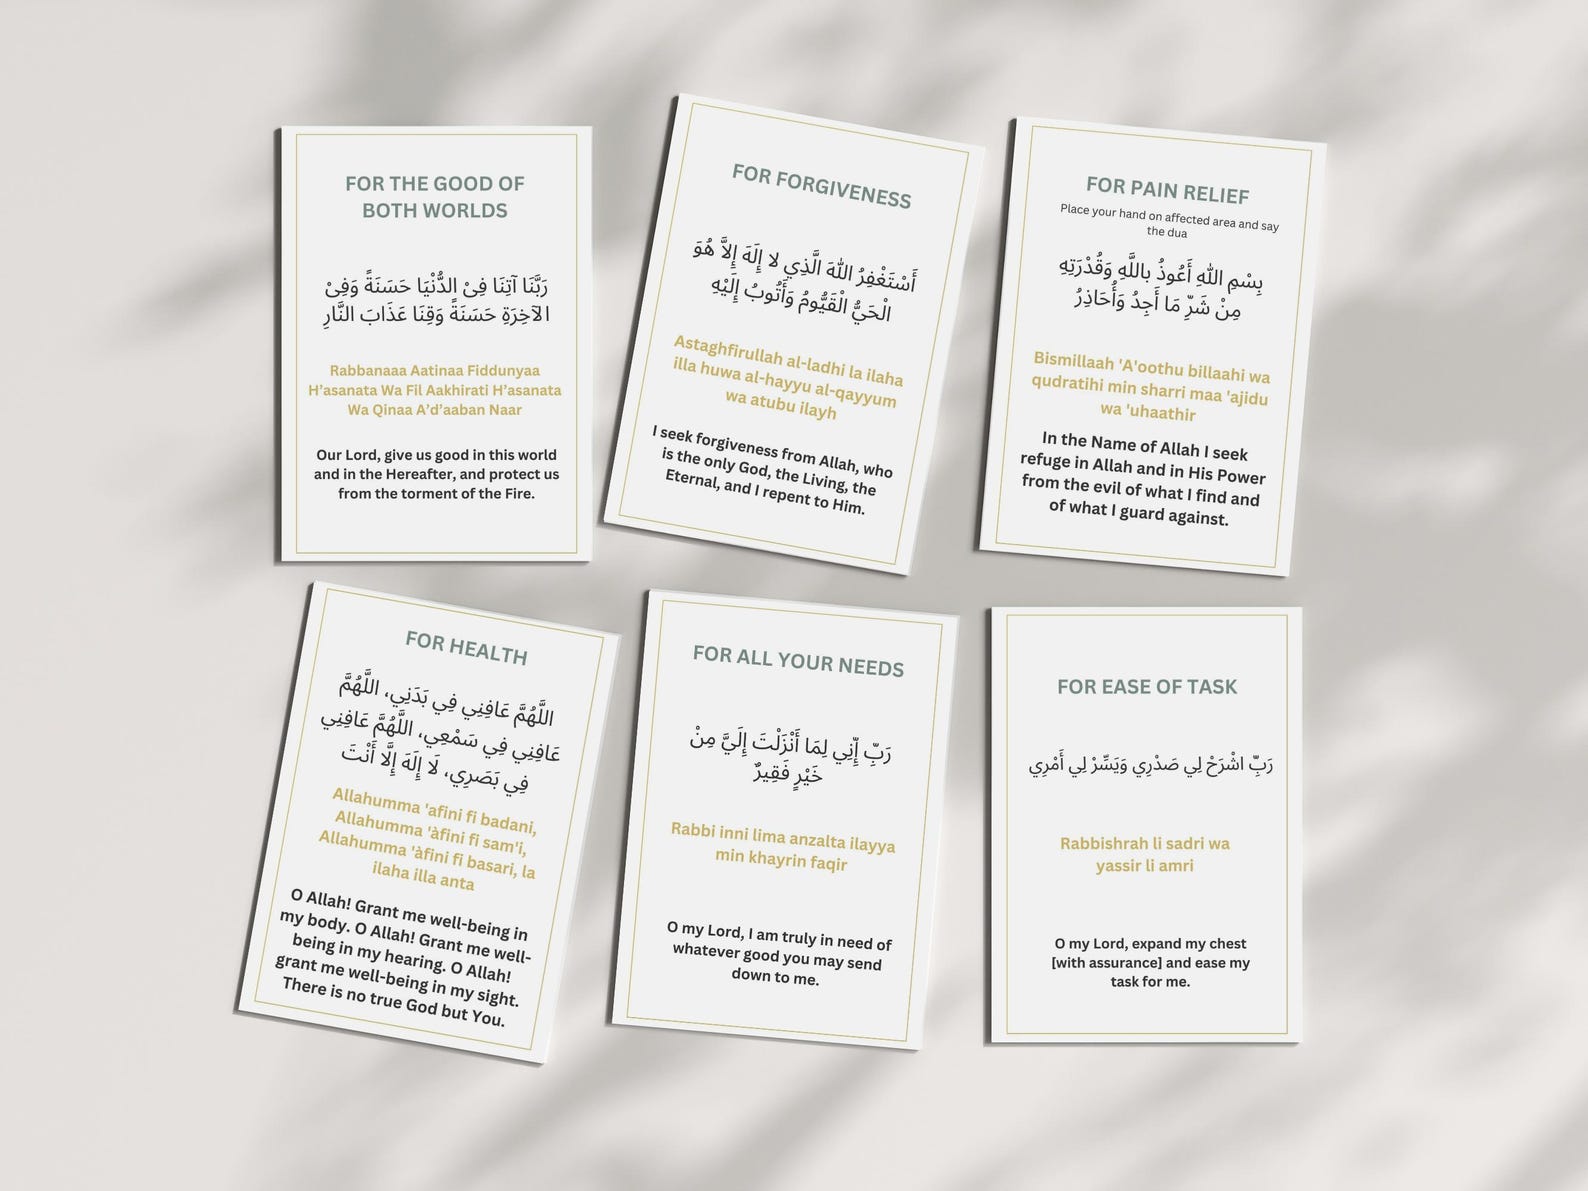 FOR THE GOOD OF
BOTH WORLDS
رَبَّنَا آتِنَا فِىْ الدُّنْيَا حَسَنَةً وَفِىْ
الآخِرَةِ حَسَنَةً وَقِنَا عَذَابَ النَّارِ
Rabbanaaa Aatinaa Fiddunyaa
H’asanata Wa Fil Aakhirati H’asanata
Wa Qinaa A’d’aaban Naar
Our Lord, give us good in this world
and in the Hereafter, and protect us
from the torment of the Fire.
FOR FORGIVENESS
أَسْتَغْفِرُ اللهَ الَّذِي لا إِلَهَ إِلاَّ هُوَ
الْحَيُّ الْقَيُّومُ وَأَتُوبُ إِلَيْهِ
Astaghfirullah al-ladhi la ilaha
illa huwa al-hayyu al-qayyum
wa atubu ilayh
I seek forgiveness from Allah, who
is the only God, the Living, the
Eternal, and I repent to Him.
FOR PAIN RELIEF
Place your hand on affected area and say
the dua
بِسْمِ اللهِ أَعُوذُ باللَّهِ وَقُدْرَتِهِ
مِنْ شَرِّ مَا أَجِدُ وَأُحَاذِرُ
Bismillaah 'A'oothu billaahi wa
qudratihi min sharri maa 'ajidu
wa 'uhaathir
In the Name of Allah I seek
refuge in Allah and in His Power
from the evil of what I find and
of what I guard against.
FOR HEALTH
اللَّهُمَّ عَافِنِي فِي بَدَنِي، اللَّهُمَّ
عَافِنِي فِي سَمْعِي، اللَّهُمَّ عَافِنِي
فِي بَصَرِي، لَا إِلَهَ إِلَّا أَنْتَ
Allahumma 'afini fi badani,
Allahumma 'àfini fi sam'i,
Allahumma 'àfini fi basari, la
ilaha illa anta
O Allah! Grant me well-being in
my body. O Allah! Grant me well-
being in my hearing. O Allah!
grant me well-being in my sight.
There is no true God but You.
FOR ALL YOUR NEEDS
رَبِّ إِنِّي لِمَا أَنْزَلْتَ إِلَيَّ مِنْ
خَيْرٍ فَقِيرٌ
Rabbi inni lima anzalta ilayya
min khayrin faqir
O my Lord, I am truly in need of
whatever good you may send
down to me.
FOR EASE OF TASK
رَبِّ اشْرَحْ لِي صَدْرِي وَيَسِّرْ لِي أَمْرِي
Rabbishrah li sadri wa
yassir li amri
O my Lord, expand my chest
[with assurance] and ease my
task for me.